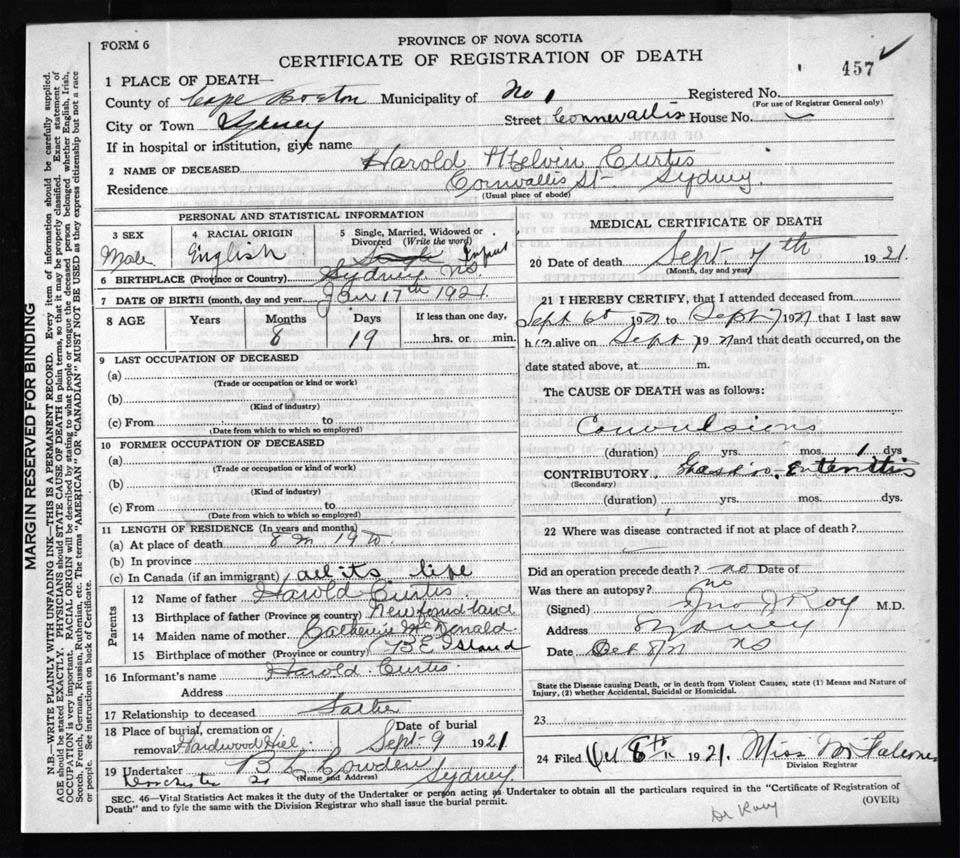 FORM 6
PROVINCE OF NOVA SCOTIA
CERTIFICATE OF REGISTRATION OF DEATH
457
1 PLACE OF DEATH—
County of Cape Breton Municipality of No 1 Registered No.
(For use of Registrar General only)
City or Town Sydney Street Cornwallis House No.
If in hospital or institution, give name
2 NAME OF DECEASED Harold Melvin Curtis
Residence Cornwallis St. Sydney
(Usual place of abode)
PERSONAL AND STATISTICAL INFORMATION
3 SEX
Male
4 RACIAL ORIGIN
English
5 Single, Married, Widowed or Divorced (Write the word)
Single Infant
6 BIRTHPLACE (Province or Country) Sydney N.S.
7 DATE OF BIRTH (month, day and year) Jan 17th 1921
8 AGE Years Months Days If less than one day,
8 19 hrs. or min.
9 LAST OCCUPATION OF DECEASED
(a)
(Trade or occupation or kind or work)
(b)
(Kind of industry)
(c) From to
(Date from which to which so employed)
10 FORMER OCCUPATION OF DECEASED
(a)
(Trade or occupation or kind of work)
(b)
(Kind of industry)
(c) From to
(Date from which to which so employed)
11 LENGTH OF RESIDENCE (In years and months)
(a) At place of death 8 m 19
(b) In province
(c) In Canada (if an immigrant) all its life
Parents
12 Name of father Harold Curtis
13 Birthplace of father (Province or country) Newfoundland
14 Maiden name of mother Catherine McDonald
15 Birthplace of mother (Province or country) P E Island
16 Informant's name Harold Curtis
Address
17 Relationship to deceased Father
18 Place of burial, cremation or removal Hardwood Hill Date of burial Sept 9 1921
19 Undertaker B L Cowden Sydney
(Name and Address)
Dorchester St
MEDICAL CERTIFICATE OF DEATH
20 Date of death Sept. 7th 1921.
(Month, day and year)
21 I HEREBY CERTIFY, that I attended deceased from
Sept 6th 1921 to Sept 7 1921 that I last saw
him alive on Sept 7 1921 and that death occurred, on the
date stated above, at m.
The CAUSE OF DEATH was as follows:
Convulsions
(duration) yrs. mos. 1 dys
CONTRIBUTORY Gastro-Enteritis
(Secondary)
(duration) yrs. mos. dys.
22 Where was disease contracted if not at place of death?
Did an operation precede death? no Date of
Was there an autopsy? no
(Signed) Jno J Roy M.D.
Address Sydney
Date Oct 8/21 NS
State the Disease causing Death, or in death from Violent Causes, state (1) Means and Nature of Injury, (2) whether Accidental, Suicidal or Homicidal.
23
24 Filed Oct 8th 1921. Miss M
Division Registrar
SEC. 46—Vital Statistics Act makes it the duty of the Undertaker or person acting as Undertaker to obtain all the particulars required in the "Certificate of Registration of
Death" and to fyle the same with the Division Registrar who shall issue the burial permit.
(OVER)
Dr Roy
MARGIN RESERVED FOR BINDING
N.B.—WRITE PLAINLY WITH UNFADING INK—THIS IS A PERMANENT RECORD. Every item of information should be carefully supplied.
AGE should be stated EXACTLY. PHYSICIANS should STATE CAUSE OF DEATH in plain terms, so that it may be properly classified. Exact statement of
OCCUPATION is very important. RACIAL ORIGIN will be described by stating to what people or tongue the deceased person belonged whether English, Irish,
Scotch, French, German, Russian, Ruthenian, etc. The terms "AMERICAN" or "CANADIAN" MUST NOT BE USED as they express citizenship but not a race
or people. See instructions on back of Certificate.